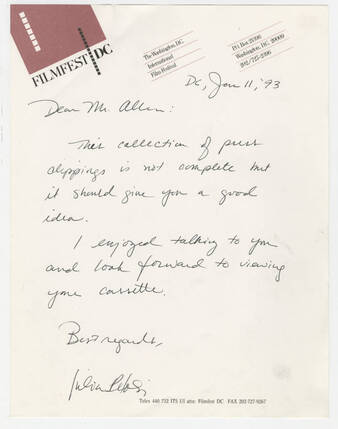 FILMFEST DC
The Washington, DC
International
Film Festival
P.O. Box 21396
Washington, DC 20009
DC, Jan 11, '93
Dear Mr. Allen:
This collection of press
clippings is not complete but
it should give you a good
idea.
I enjoyed talking to you
and look forward to viewing
your cassette.
Best regards,
Telex 440 732 ITS UI attn: Filmfest DC FAX 202-727-9267